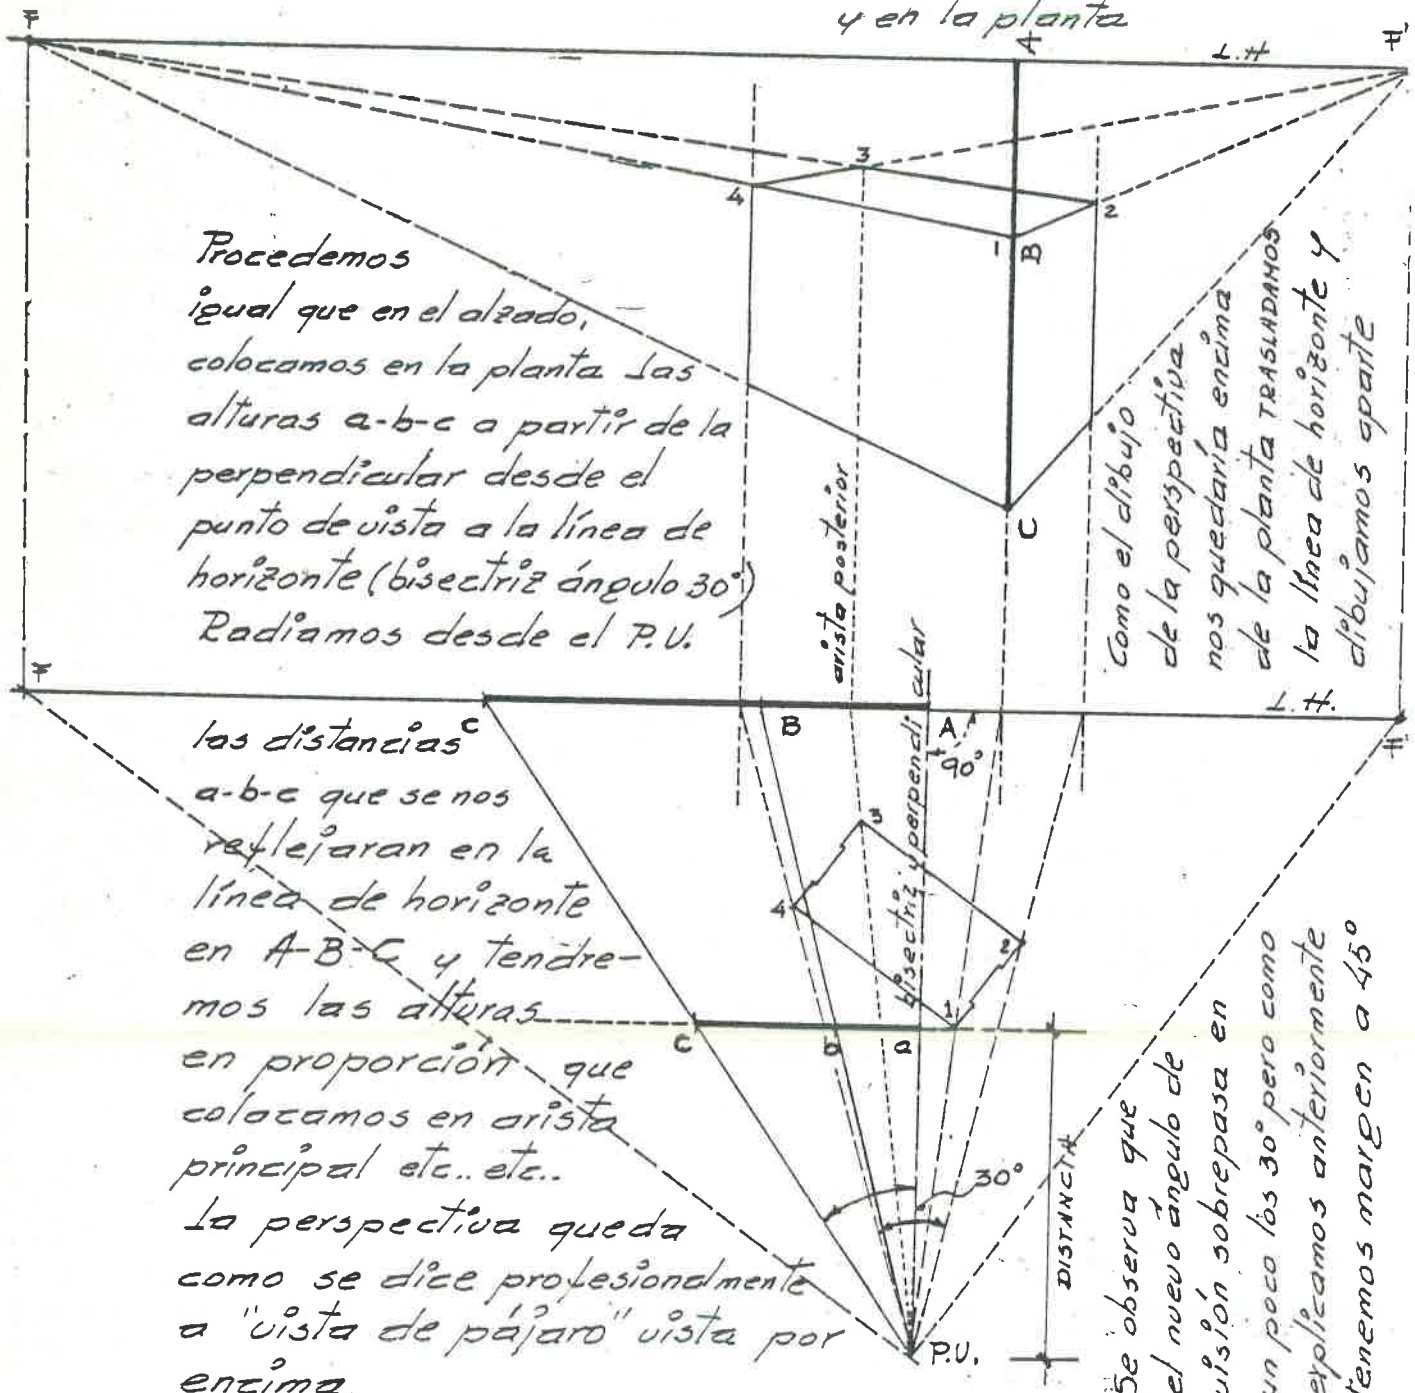 y en la planta
F
A
L.H
F'
3
4
2
1
B
C
Procedemos
igual que en el alzado,
colocamos en la planta las
alturas a-b-c a partir de la
perpendicular desde el
punto de vista a la línea de
horizonte (bisectriz ángulo 30°)
Radiamos desde el P.V.
arista posterior
Como el dibujo
de la perspectiva
nos quedaría encima
de la planta TRASLADAMOS
la línea de horizonte y
dibujamos aparte
F
C
B
A
L.H.
F'
90°
bisectriz y perpendicular
3
4
2
1
c
b
a
las distancias
a-b-c que se nos
reflejaran en la
línea de horizonte
en A-B-C y tendre-
mos las alturas
en proporción que
colocamos en arista
principal etc.. etc..
La perspectiva queda
como se dice profesionalmente
a "vista de pájaro" vista por
encima
30°
DISTANCIA
P.V.
Se observa que
el nuevo ángulo de
visión sobrepasa en
un poco los 30° pero como
explicamos anteriormente
tenemos margen a 45°